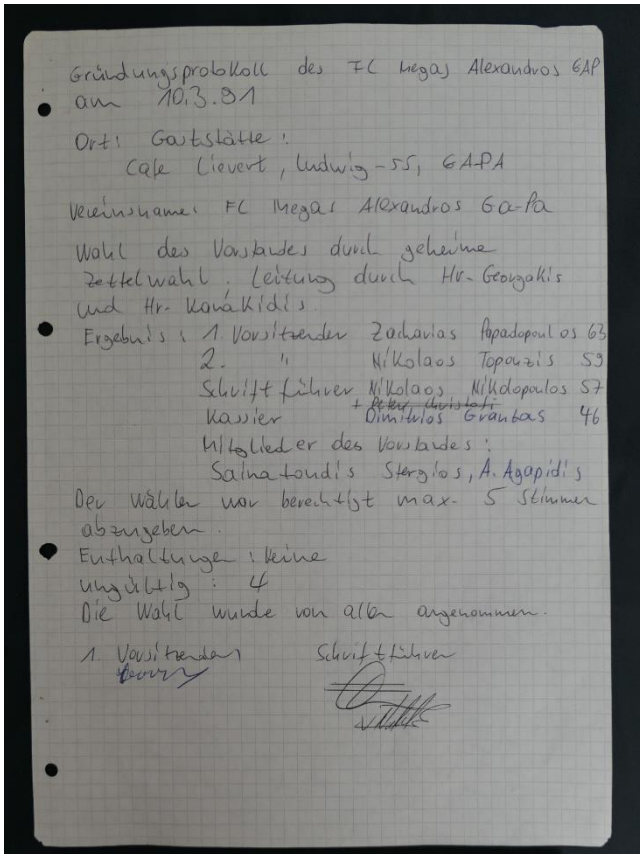 Gründungsprotokoll des FC Megas Alexandros GAP
am 10.3.91
Ort: Gaststätte:
Cafe Lievert, Ludwig-55, GAPA
Vereinsname: FC Megas Alexandros Ga-Pa
Wahl des Vorstandes durch geheime
Zettelwahl. Leitung durch Hr. Georgakis
und Hr. Karakidis.
Ergebnis: 1. Vorsitzender Zacharias Papadopoulos 63
2. " Nikolaos Topouzis 59
Schriftführer Nikolaos Nikolopoulos 57
+ Peter Christofi
Kassier Dimitrios Grambas 46
Mitglieder des Vorstandes:
Sainatoudis Stergios, A. Agapidis
Der Wähler war berechtigt max. 5 Stimmen
abzugeben.
Enthaltungen: keine
ungültig: 4
Die Wahl wurde von allen angenommen.
1. Vorsitzender Schriftführer